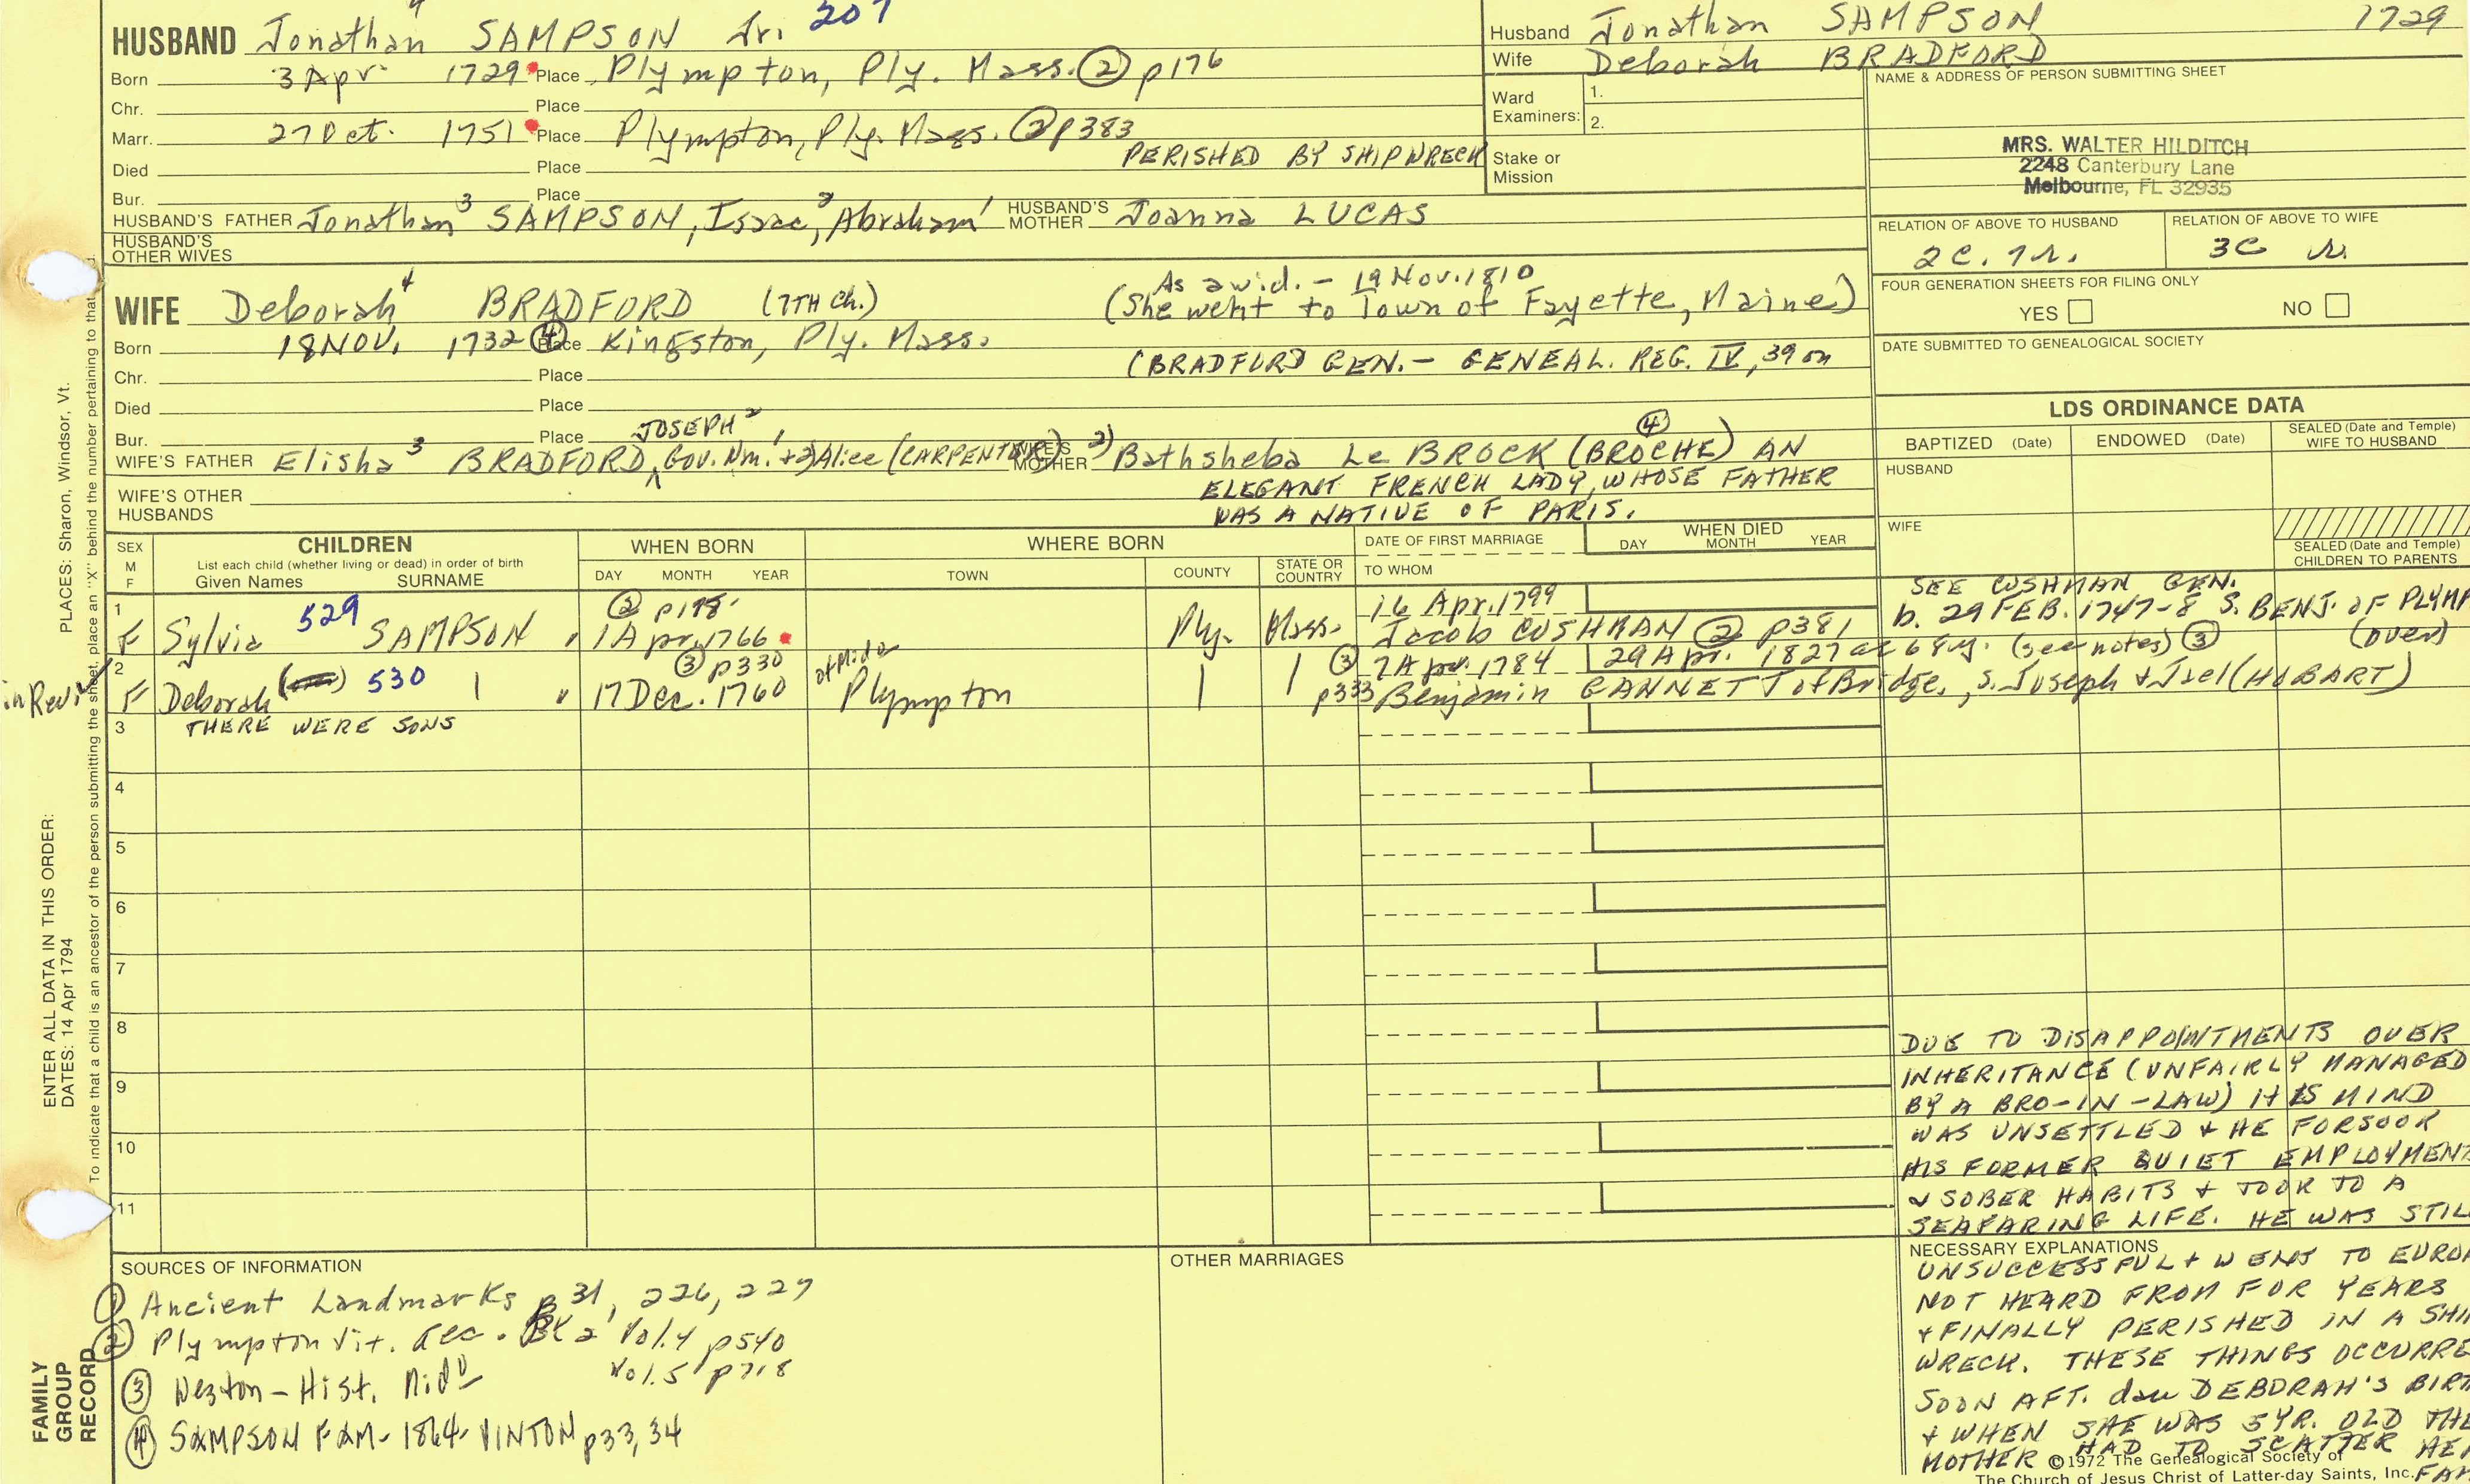 HUSBAND Jonathan 4 SAMPSON Jr. 207
Born 3 Apr 1729 Place Plympton, Ply. Mass. (2) p176
Chr. Place
Marr. 27 Oct. 1751 Place Plympton, Ply. Mass. (2) p383
Died Place PERISHED BY SHIPWRECK
Bur. Place
HUSBAND'S FATHER Jonathan 3 SAMPSON, Isaac 2, Abraham 1 HUSBAND'S MOTHER Joanna LUCAS
HUSBAND'S OTHER WIVES
Husband Jonathan SAMPSON 1729
Wife Deborah BRADFORD
Ward Examiners: 1.
2.
Stake or Mission
NAME & ADDRESS OF PERSON SUBMITTING SHEET
MRS. WALTER HILDITCH
2248 Canterbury Lane
Melbourne, FL 32935
RELATION OF ABOVE TO HUSBAND RELATION OF ABOVE TO WIFE
2C. 7r. 3C r.
FOUR GENERATION SHEETS FOR FILING ONLY
YES NO
DATE SUBMITTED TO GENEALOGICAL SOCIETY
As a wid. - 19 Nov. 1810
WIFE Deborah 4 BRADFORD (7TH Ch.) (She went to Town of Fayette, Maine)
Born 18 NOV. 1732 (4) Place Kingston, Ply. Mass.
(BRADFORD GEN. - GENEAL. REG. IV, 39 on
Chr. Place
Died Place
Bur. Place JOSEPH 2
WIFE'S FATHER Elisha 3 BRADFORD, Gov. Wm. 1 + 2) Alice (CARPENTER) WIFE'S MOTHER 2) Bathsheba Le BROCK (BROCHE) (4) AN
ELEGANT FRENCH LADY, WHOSE FATHER
WAS A NATIVE OF PARIS.
WIFE'S OTHER HUSBANDS
LDS ORDINANCE DATA
BAPTIZED (Date) ENDOWED (Date) SEALED (Date and Temple) WIFE TO HUSBAND
HUSBAND
WIFE
SEALED (Date and Temple) CHILDREN TO PARENTS
SEX M F CHILDREN WHEN BORN WHERE BORN DATE OF FIRST MARRIAGE WHEN DIED
List each child (whether living or dead) in order of birth
Given Names SURNAME DAY MONTH YEAR TOWN COUNTY STATE OR COUNTRY TO WHOM DAY MONTH YEAR
SEE CUSHMAN GEN.
1 (2) p178 16 Apr. 1799 b. 29 FEB. 1747-8 S. BENJ. OF PLYMP
F Sylvia 529 SAMPSON " 1 Apr. 1766 Ply. Mass. Jacob CUSHMAN (2) p381 (over)
2 (3) p330 of Mid (3) 7 Apr. 1784 29 Apr. 1827 ae 68 y. (see notes) (3)
in Rev. F Deborah 530 " 17 Dec. 1760 Plympton p333 Benjamin GANNETT of Bridge., s. Joseph + (HOBART)
3 THERE WERE SONS
4
5
6
7
8
9
10
11
DUE TO DISAPPOINTMENTS OVER
INHERITANCE (UNFAIRLY MANAGED
BY A BRO-IN-LAW) HIS MIND
WAS UNSETTLED + HE FORSOOK
HIS FORMER QUIET EMPLOYMENT
+ SOBER HABITS + TOOK TO A
SEAFARING LIFE. HE WAS STIL
NECESSARY EXPLANATIONS
UNSUCCESSFUL + WENT TO EURO
NOT HEARD FROM FOR YEARS
+ FINALLY PERISHED IN A SHI
WRECK. THESE THINGS OCCURRE
SOON AFT. dau DEBORAH'S BIRT
+ WHEN SHE WAS 5 YR. OLD THE
MOTHER HAD TO SCATTER HE
FAM
©1972 The Genealogical Society of
The Church of Jesus Christ of Latter-day Saints, Inc.
SOURCES OF INFORMATION
(1) Ancient Landmarks p 31, 226, 227
(2) Plympton Vit. Rec. Bk 2 Vol. 4 p540
Vol. 5 p718
(3) Weston - Hist. Midd
(4) SAMPSON FAM - 1864 - VINTON p33, 34
OTHER MARRIAGES
FAMILY GROUP RECORD
ENTER ALL DATA IN THIS ORDER:
DATES: 14 Apr 1794
PLACES: Sharon, Windsor, Vt.
To indicate that a child is an ancestor of the person submitting the sheet, place an "X" behind the number pertaining to that